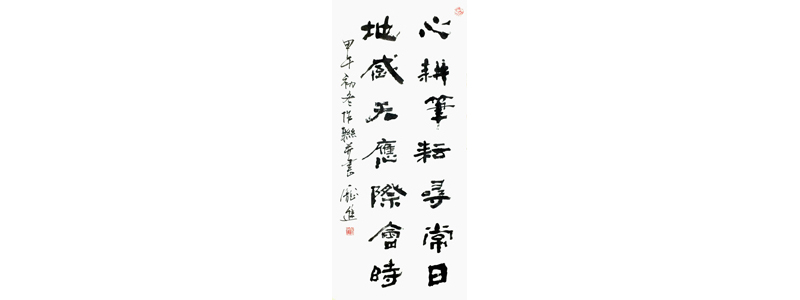 心耕筆耘尋常日
地感天應際會時
甲午初冬作聯并書 龐進